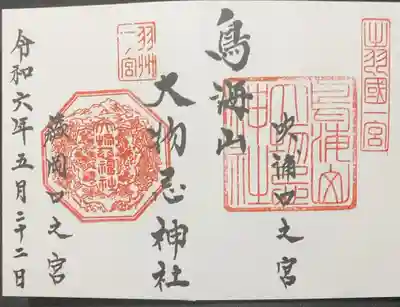 出羽國一宮
鳥海山大物忌神社
吹浦口之宮
鳥海山
大物忌神社
羽州一ノ宮
大物忌神社
蕨岡口之宮
令和六年五月二十二日